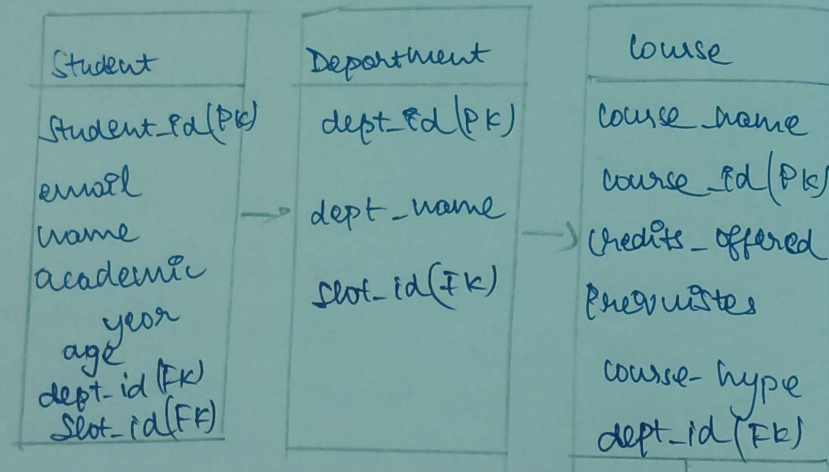 Student
Student_id(PK)
email
name
academic
year
age
dept_id(FK)
Slot_id(FK)
Department
dept_id(PK)
dept_name
slot_id(FK)
Course
course_name
course_id(PK)
Credits_offered
Prequistes
course-hype
dept_id(FK)